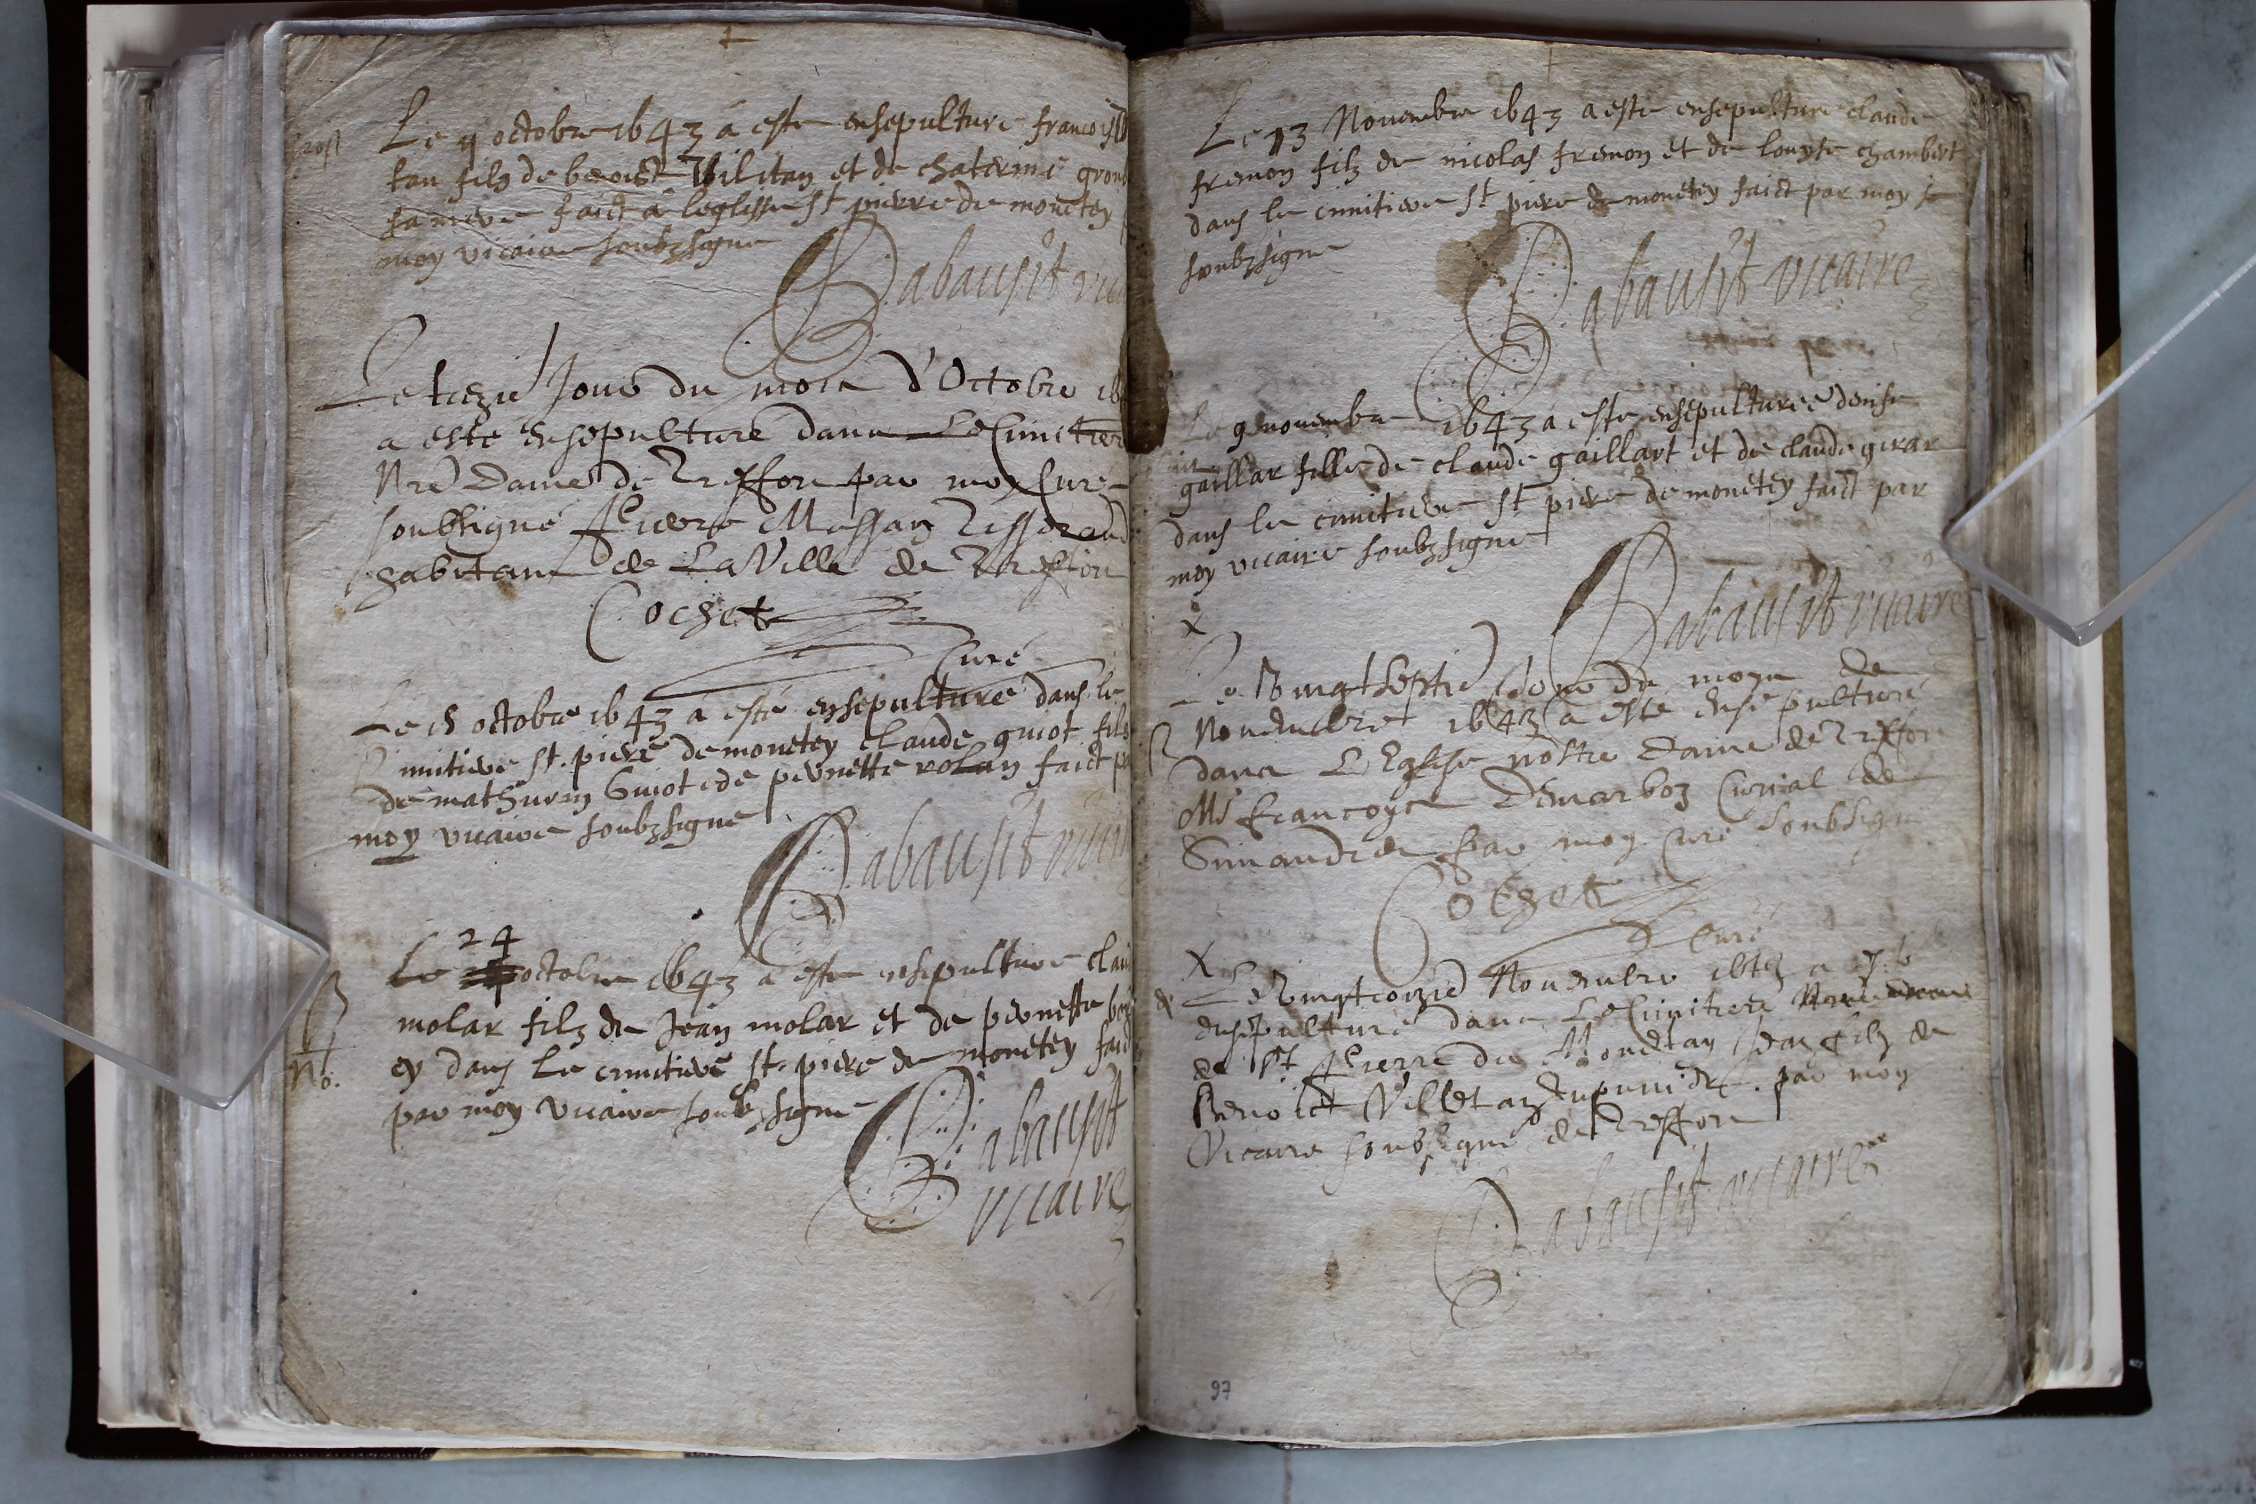 Le 9 octobre 1643 a este ensepulture francois
tan filz de benoist Vilitan et de chaterine
sa mere faict a leglisse st pierre de monetey
moy vicaire soubzsigne
Dabausit vic
Le trezie Jour du mois d'Octobre 16
a esté ensepulturé dans Le Cimetiere
Nre Dame de Treffort par moy Curé
soubsigné Pierre Massan Tisserand
habitant de La Ville de Treffort
Cochet
Curé
Le 15 octobre 1643 a esté ensepulturé dans le
Cimitiere st. piere de monetey claude guiot filz
de mathurin Guiot e de pernette rolan faict p
moy vicaire soubzsigne
Dabausit vicai
24
Le octobre 1643 a este ensepulture clau
molar filz de Jean molar et de pernette boz
ey dans le cimitiere st. piere de monetey faict
par moy vicaire soubzsigne
No.
Dabausit
vicaire
Le 13 Novembre 1643 a este ensepulture claude
fremon filz de nicolas fremon et de louyse chambert
dans le cimitiere st piere de monetey faict par moy
soubzsigne
Dabausit vicaire
Le 9 novembre 1643 a este ensepulturee denise
gaillar fille de claude gaillart et de claude girar
dans le cimitiere st piere de monetey faict par
moy vicaire soubzsigne
Dabausit vicaire
X
Le Vingtseptie Jour du moys de
Novembre 1643 a este ensepulturé
dans L'Eglise nostre Dame de Treffort
Mr Francoys Demarboz Curial de
Simandre par moy curé soubsigné
Cochet
Curé
X Le Vingtroizie Novembre 1643 a
ensepulturé dans Le Cimitiere
de St Pierre de Monetay Jean filz de
Benoict Villetan par moy
Vicaire soubsigné de Treffort
Dabausit vicaire
97